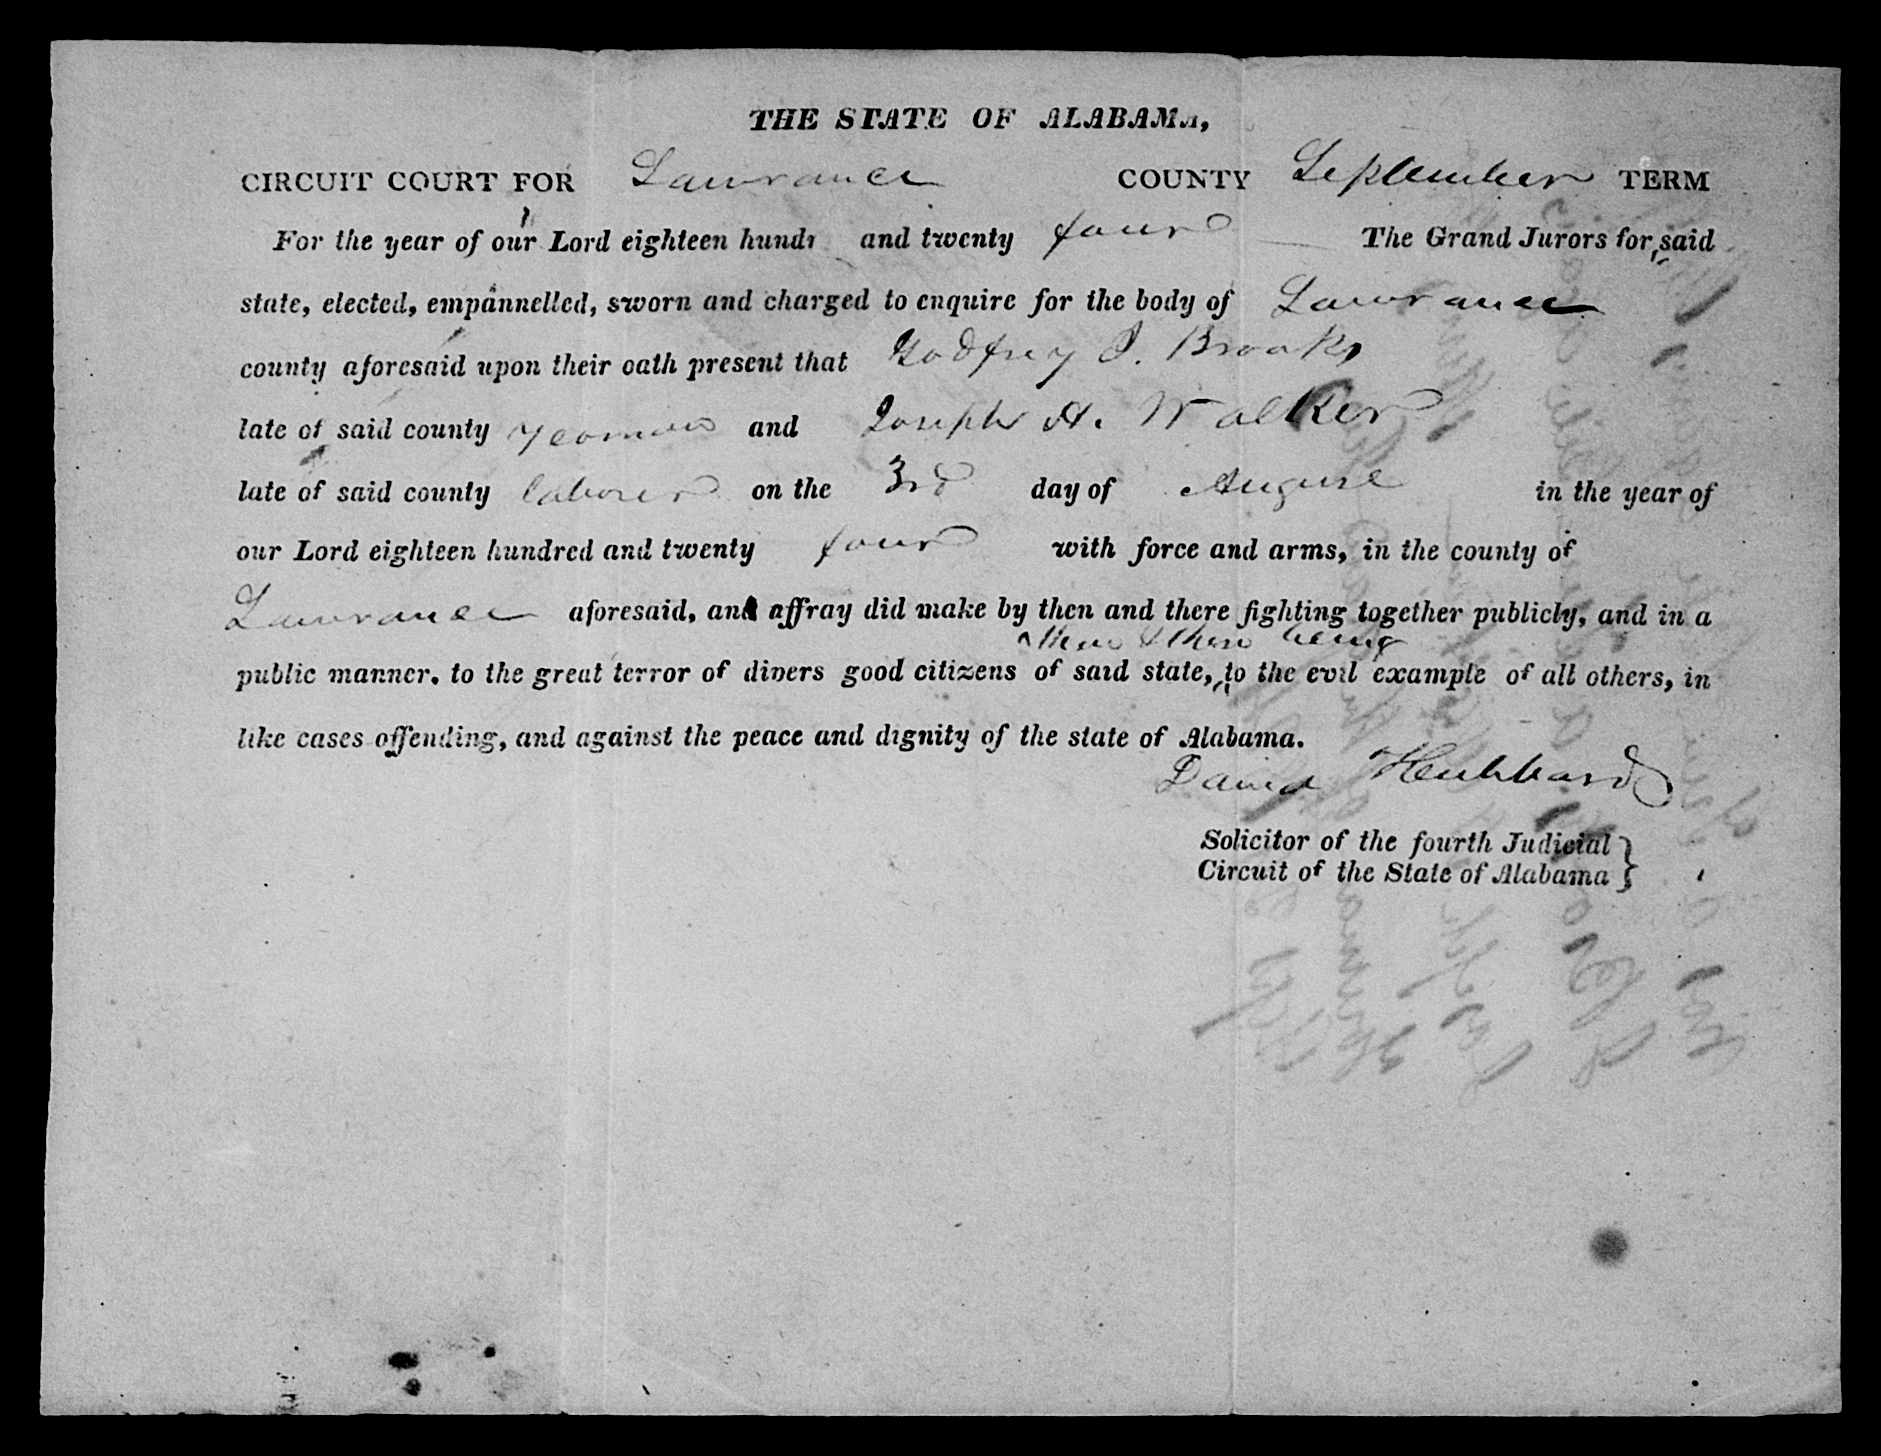 THE STATE OF ALABAMA,
CIRCUIT COURT FOR Lawrance COUNTY September TERM
For the year of our Lord eighteen hundr and twenty four The Grand Jurors for said
state, elected, empannelled, sworn and charged to enquire for the body of Lawrance
county aforesaid upon their oath present that Godfrey J. Brooks
late of said county yeoman and Joseph A. Walker
late of said county laborer on the 3rd day of August in the year of
our Lord eighteen hundred and twenty four with force and arms, in the county of
Lawrance aforesaid, an affray did make by then and there fighting together publicly, and in a
then & there being
public manner. to the great terror of divers good citizens of said state, to the evil example of all others, in
like cases offending, and against the peace and dignity of the state of Alabama.
David Hubbard
Solicitor of the fourth Judicial
Circuit of the State of Alabama